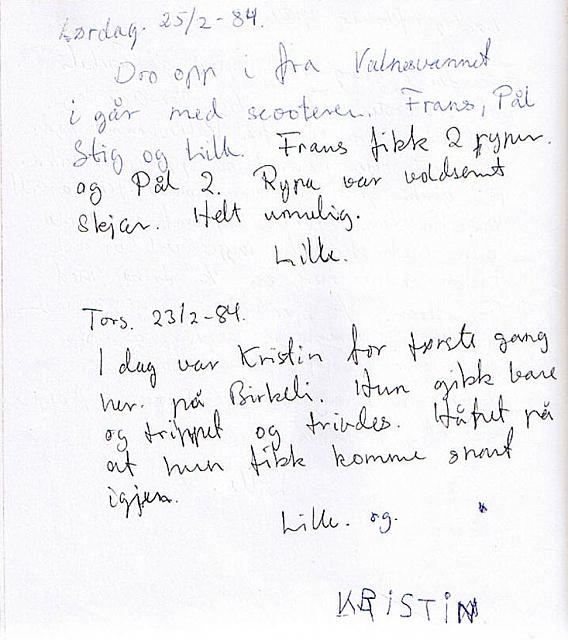 Lørdag. 25/2-84.
Dro opp i fra Valnesvannet
i går med scooteren. Frans, Pål
Stig og Lille. Frans fikk 2 ryper.
og Pål 2. Rypa var voldsomt
skjær. Helt umulig.
Lille.
Tors. 23/2-84.
I dag var Kristin for første gang
her. på Birkeli. Hun gikk bare
og trippet og trivdes. Håpet på
at hun fikk komme snart
igjen.
Lille. og.
KRiSTiN